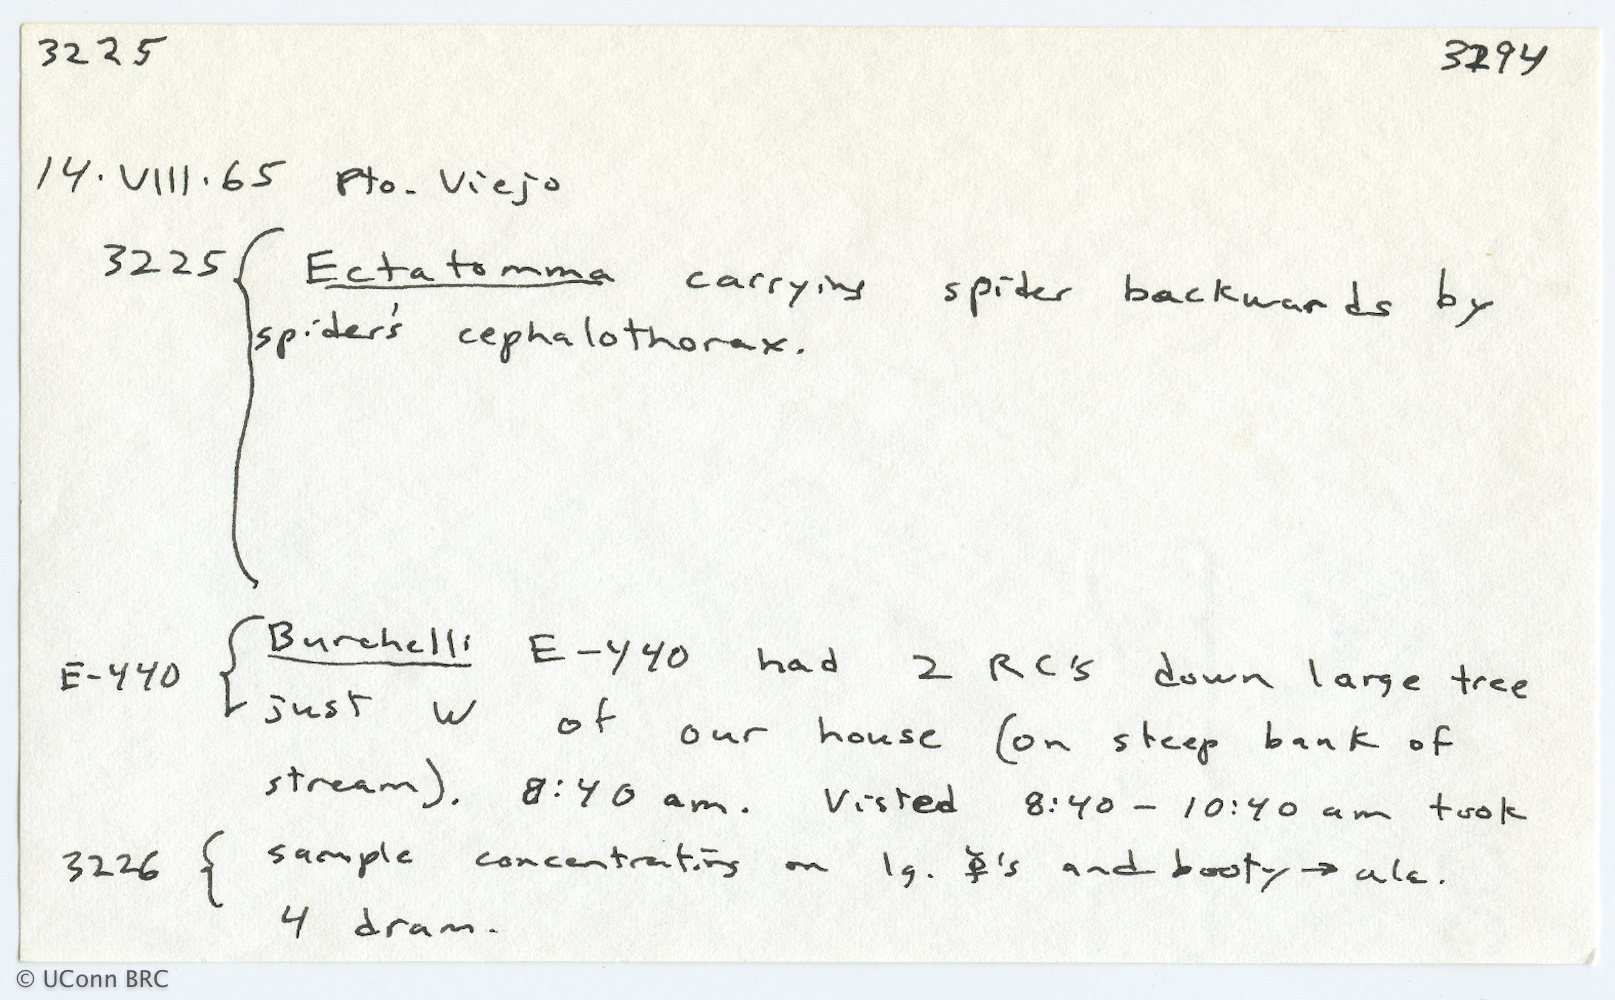 3225 3294
14.VIII.65 Pto. Viejo
3225 { Ectatomma carrying spider backwards by
spider's cephalothorax.
E-440 { Burchelli E-440 had 2 RC's down large tree
just W of our house (on steep bank of
stream). 8:40 am. Visted 8:40 - 10:40 am took
3226 { sample concentrating on lg. ☿'s and booty → alc.
4 dram.
© UConn BRC